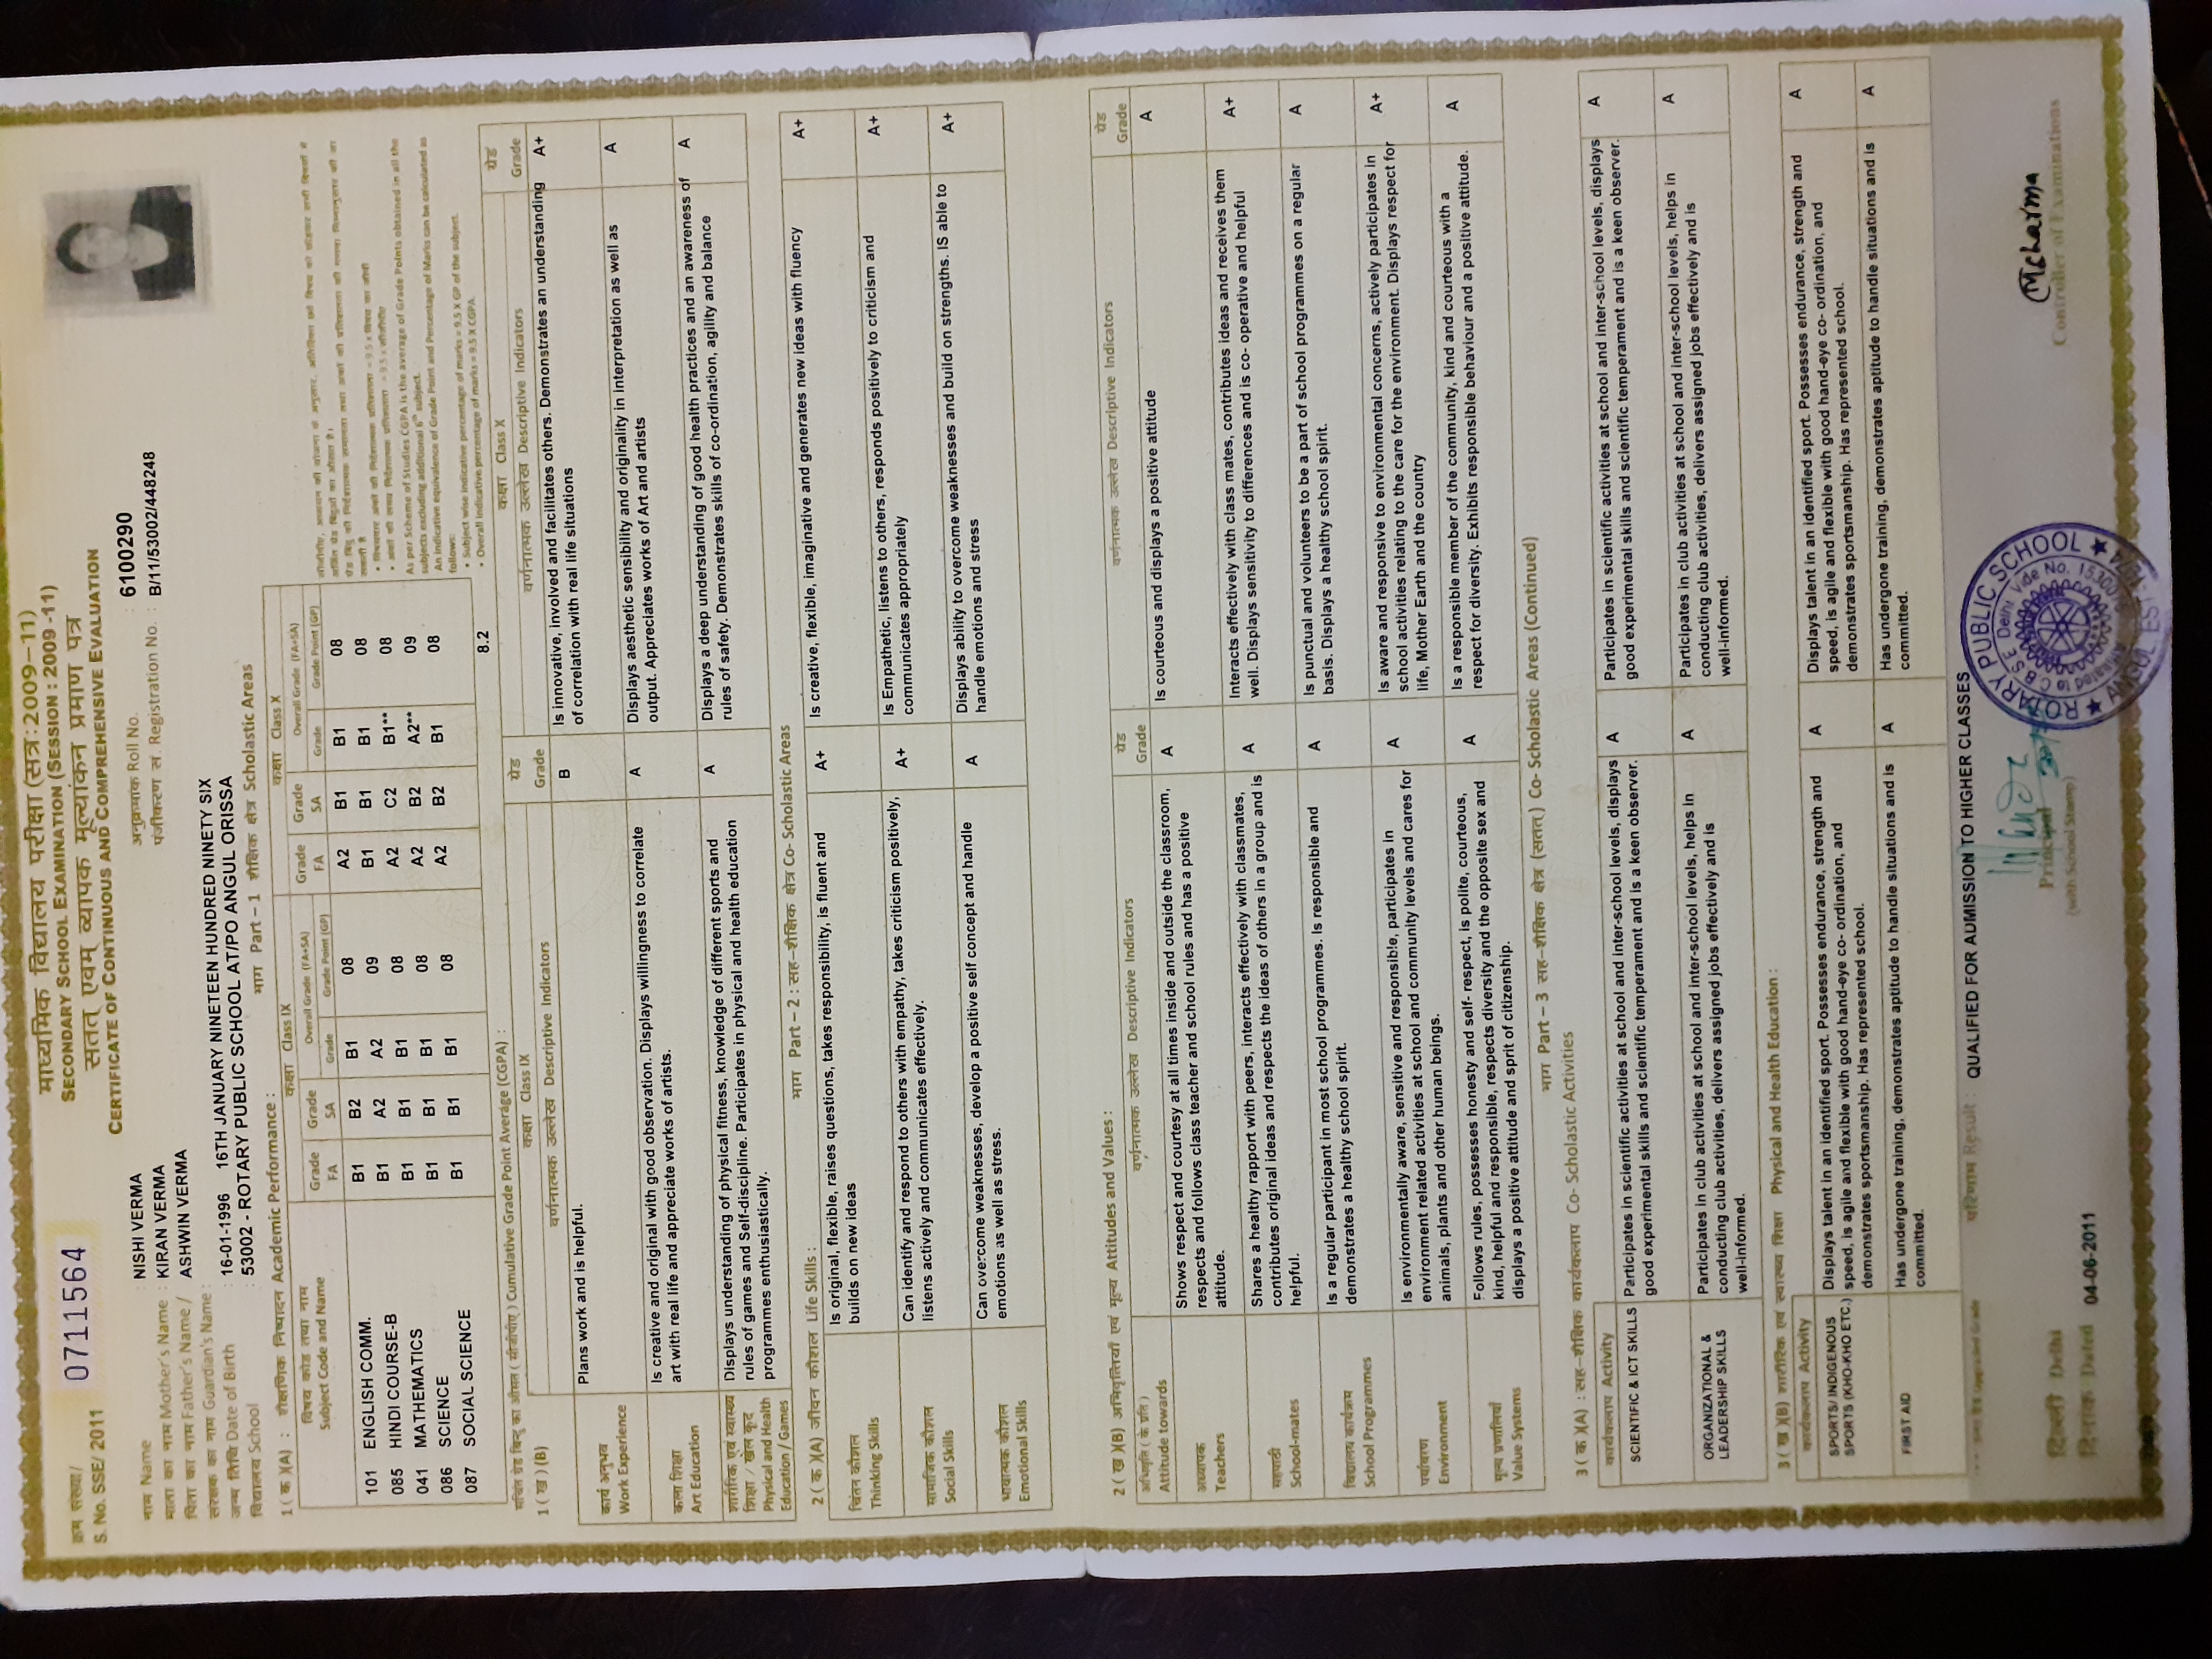 माध्यमिक विद्यालय परीक्षा (सत्र:2009-11)
SECONDARY SCHOOL EXAMINATION (SESSION : 2009 -11)
सतत् एवम् व्यापक मूल्यांकन प्रमाण पत्र
CERTIFICATE OF CONTINUOUS AND COMPREHENSIVE EVALUATION
क्रम संख्या /
S. No. SSE/ 2011 0711564
अनुक्रमांक Roll No. : 6100290
पंजीकरण सं. Registration No. : B/11/53002/448248
नाम Name : NISHI VERMA
माता का नाम Mother's Name : KIRAN VERMA
पिता का नाम Father's Name / ASHWIN VERMA
संरक्षक का नाम Guardian's Name :
जन्म तिथि Date of Birth : 16-01-1996 16TH JANUARY NINETEEN HUNDRED NINETY SIX
विद्यालय School : 53002 - ROTARY PUBLIC SCHOOL AT/PO ANGUL ORISSA
भाग Part – 1 शैक्षिक क्षेत्र Scholastic Areas
1 ( क )(A) : शैक्षणिक निष्पादन Academic Performance :
विषय कोड तथा नाम कक्षा Class IX कक्षा Class X
Subject Code and Name Grade FA Grade SA Overall Grade (FA+SA) Grade Grade Point (GP) Grade FA Grade SA Overall Grade (FA+SA) Grade Grade Point (GP)
101 ENGLISH COMM. B1 B2 B1 08 A2 B1 B1 08
085 HINDI COURSE-B B1 A2 A2 09 B1 B1 B1 08
041 MATHEMATICS B1 B1 B1 08 A2 C2 B1** 08
086 SCIENCE B1 B1 B1 08 A2 B2 A2** 09
087 SOCIAL SCIENCE B1 B1 B1 08 A2 B2 B1 08
As per Scheme of Studies CGPA is the average of Grade Points obtained in all the
subjects excluding additional 6th subject.
An indicative equivalence of Grade Point and Percentage of Marks can be calculated as
follows:
• Subject wise indicative percentage of marks = 9.5 X GP of the subject.
• Overall indicative percentage of marks = 9.5 X CGPA.
Cumulative Grade Point Average (CGPA) : 8.2
1 ( ख ) (B) कक्षा Class IX कक्षा Class X
वर्णनात्मक उल्लेख Descriptive Indicators ग्रेड Grade वर्णनात्मक उल्लेख Descriptive Indicators ग्रेड Grade
कार्य अनुभव
Work Experience
Plans work and is helpful.
B
Is innovative, involved and facilitates others. Demonstrates an understanding
of correlation with real life situations
A+
कला शिक्षा
Art Education
Is creative and original with good observation. Displays willingness to correlate
art with real life and appreciate works of artists.
A
Displays aesthetic sensibility and originality in interpretation as well as
output. Appreciates works of Art and artists
A
शारीरिक एवं स्वास्थ्य
शिक्षा / खेल कूद
Physical and Health
Education / Games
Displays understanding of physical fitness, knowledge of different sports and
rules of games and Self-discipline. Participates in physical and health education
programmes enthusiastically.
A
Displays a deep understanding of good health practices and an awareness of
rules of safety. Demonstrates skills of co-ordination, agility and balance
A
भाग Part – 2 : सह-शैक्षिक क्षेत्र Co- Scholastic Areas
2 ( क )(A) जीवन कौशल Life Skills :
चिंतन कौशल
Thinking Skills
Is original, flexible, raises questions, takes responsibility, is fluent and
builds on new ideas
A+
Is creative, flexible, imaginative and generates new ideas with fluency
A+
सामाजिक कौशल
Social Skills
Can identify and respond to others with empathy, takes criticism positively,
listens actively and communicates effectively.
A+
Is Empathetic, listens to others, responds positively to criticism and
communicates appropriately
A+
भावनात्मक कौशल
Emotional Skills
Can overcome weaknesses, develop a positive self concept and handle
emotions as well as stress.
A
Displays ability to overcome weaknesses and build on strengths. IS able to
handle emotions and stress
A+
2 ( ख )(B) अभिवृत्तियाँ एवं मूल्य Attitudes and Values :
अभिवृत्ति ( के प्रति )
Attitude towards
वर्णनात्मक उल्लेख Descriptive Indicators ग्रेड Grade वर्णनात्मक उल्लेख Descriptive Indicators ग्रेड Grade
अध्यापक
Teachers
Shows respect and courtesy at all times inside and outside the classroom,
respects and follows class teacher and school rules and has a positive
attitude.
A
Is courteous and displays a positive attitude
A
सहपाठी
School-mates
Shares a healthy rapport with peers, interacts effectively with classmates,
contributes original ideas and respects the ideas of others in a group and is
helpful.
A
Interacts effectively with class mates, contributes ideas and receives them
well. Displays sensitivity to differences and is co- operative and helpful
A+
विद्यालय कार्यक्रम
School Programmes
Is a regular participant in most school programmes. Is responsible and
demonstrates a healthy school spirit.
A
Is punctual and volunteers to be a part of school programmes on a regular
basis. Displays a healthy school spirit.
A
पर्यावरण
Environment
Is environmentally aware, sensitive and responsible, participates in
environment related activities at school and community levels and cares for
animals, plants and other human beings.
A
Is aware and responsive to environmental concerns, actively participates in
school activities relating to the care for the environment. Displays respect for
life, Mother Earth and the country
A+
मूल्य प्रणालियाँ
Value Systems
Follows rules, possesses honesty and self- respect, is polite, courteous,
kind, helpful and responsible, respects diversity and the opposite sex and
displays a positive attitude and sprit of citizenship.
A
Is a responsible member of the community, kind and courteous with a
respect for diversity. Exhibits responsible behaviour and a positive attitude.
A
भाग Part – 3 सह-शैक्षिक क्षेत्र (सतत) Co- Scholastic Areas (Continued)
3 ( क )(A) : सह-शैक्षिक कार्यकलाप Co- Scholastic Activities
कार्यकलाप Activity
SCIENTIFIC & ICT SKILLS
Participates in scientific activities at school and inter-school levels, displays
good experimental skills and scientific temperament and is a keen observer.
A
Participates in scientific activities at school and inter-school levels, displays
good experimental skills and scientific temperament and is a keen observer.
A
ORGANIZATIONAL &
LEADERSHIP SKILLS
Participates in club activities at school and inter-school levels, helps in
conducting club activities, delivers assigned jobs effectively and is
well-informed.
A
Participates in club activities at school and inter-school levels, helps in
conducting club activities, delivers assigned jobs effectively and is
well-informed.
A
3 ( ख )(B) शारीरिक एवं स्वास्थ्य शिक्षा Physical and Health Education :
कार्यकलाप Activity
SPORTS/ INDIGENOUS
SPORTS (KHO-KHO ETC.)
Displays talent in an identified sport. Possesses endurance, strength and
speed, is agile and flexible with good hand-eye co- ordination, and
demonstrates sportsmanship. Has represented school.
A
Displays talent in an identified sport. Possesses endurance, strength and
speed, is agile and flexible with good hand-eye co- ordination, and
demonstrates sportsmanship. Has represented school.
A
FIRST AID
Has undergone training, demonstrates aptitude to handle situations and is
committed.
A
Has undergone training, demonstrates aptitude to handle situations and is
committed.
A
Upgraded Grade
परिणाम Result : QUALIFIED FOR ADMISSION TO HIGHER CLASSES
दिल्ली Delhi
दिनांक Dated 04-06-2011
Principal
(with School Stamp)
ROTARY PUBLIC SCHOOL
MCSharma
Controller of Examinations